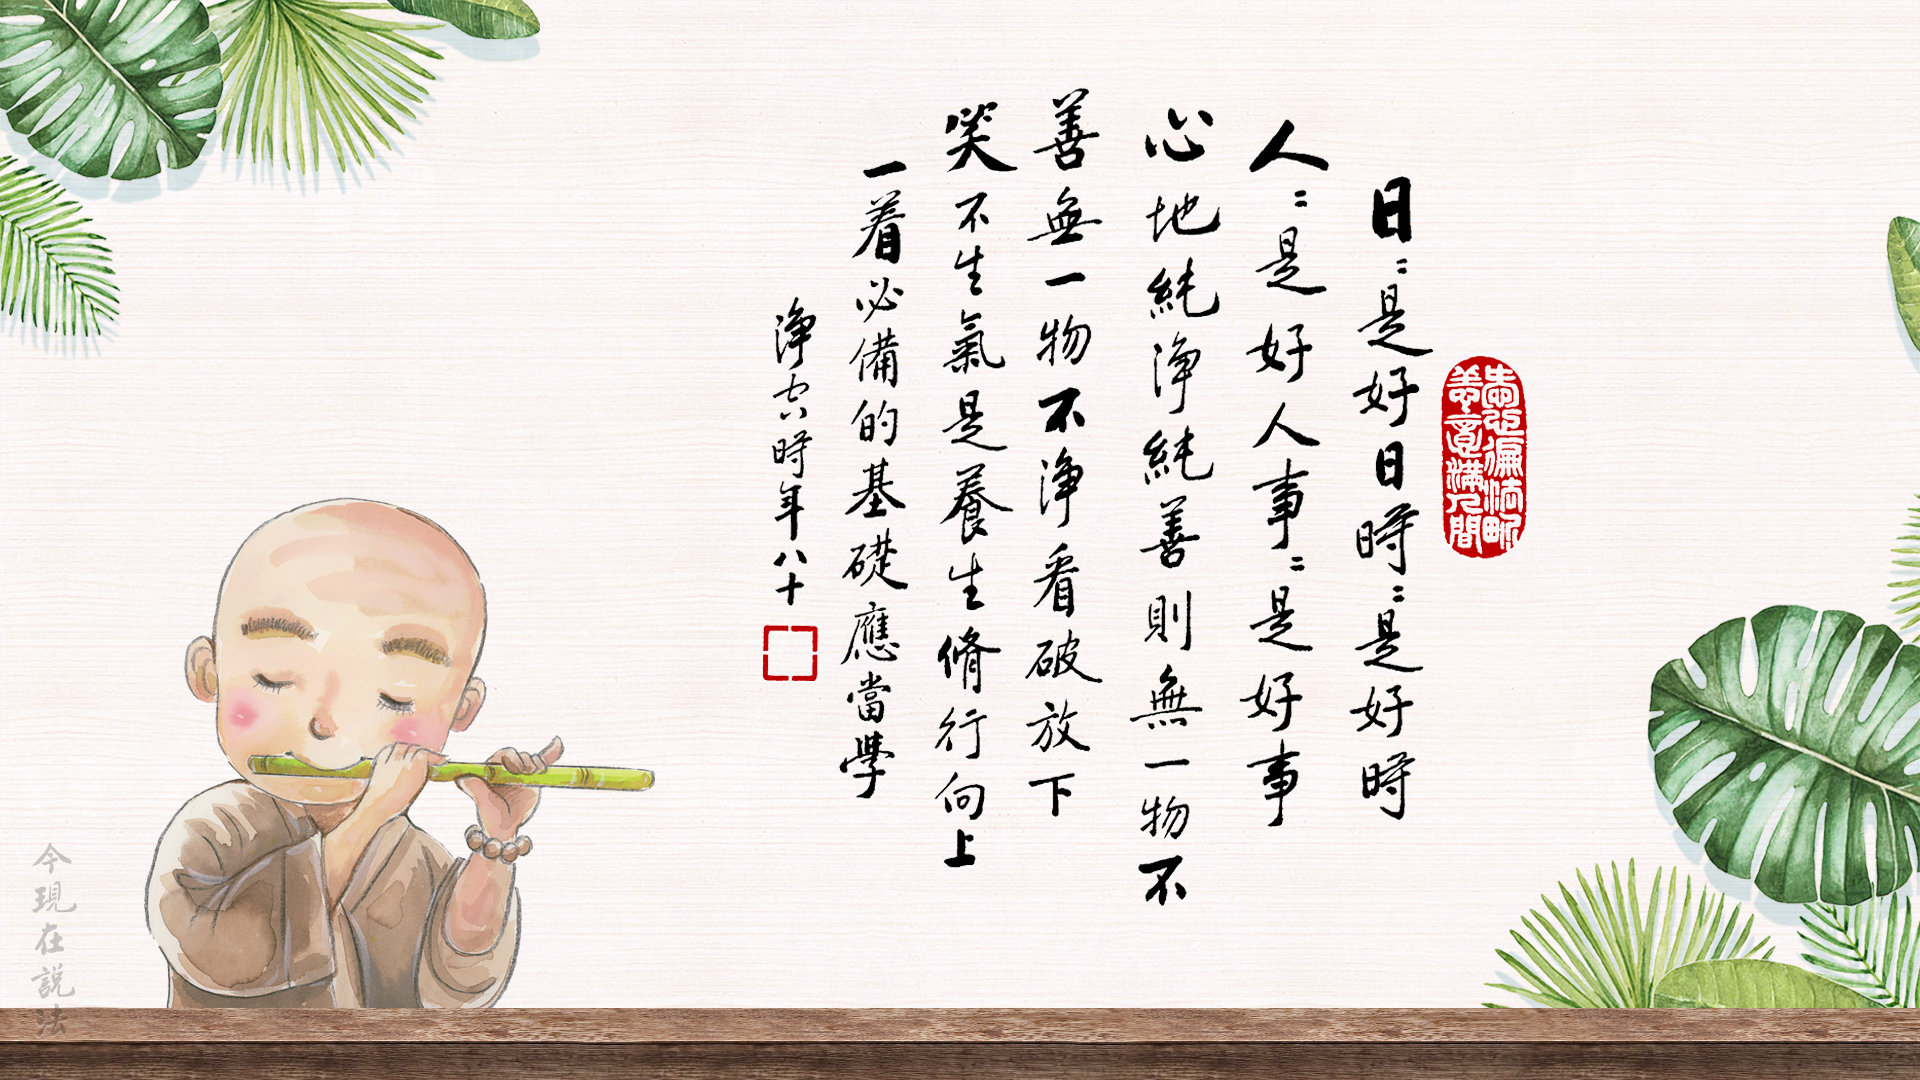 日：是好日時：是好時
人：是好人事：是好事
心地純淨純善則無一物不
善無一物不淨看破放下
笑不生氣是養生脩行向上
一着必備的基礎應當學
淨空時年八十
今現在説法